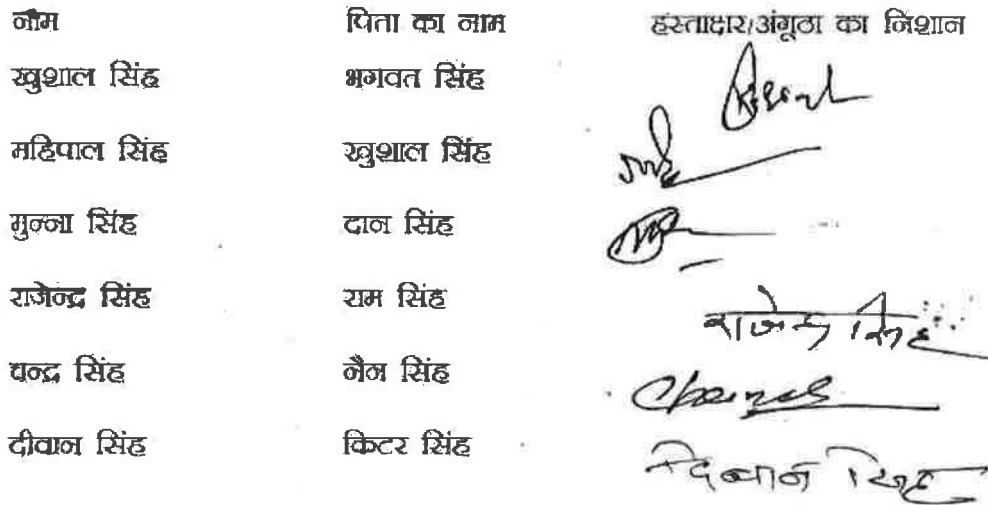 नाम पिता का नाम हस्ताक्षर/अंगूठा का निशान
खुशाल सिंह भगवत सिंह
महिपाल सिंह खुशाल सिंह
मुन्ना सिंह दान सिंह
राजेन्द्र सिंह राम सिंह राजेन्द्र सिंह
चन्द्र सिंह नैन सिंह
दीवान सिंह किटर सिंह दिवान सिंह